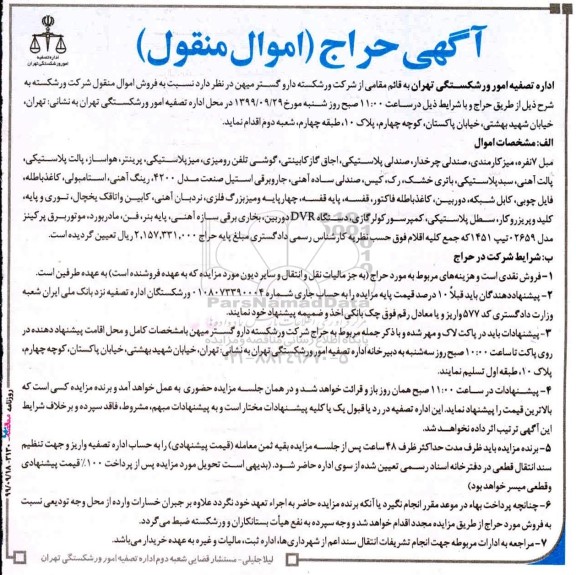 آگهی حراج (اموال منقول)
اداره تصفیه
امور ورشکستگی تهران
اداره تصفیه امور ورشکستگی تهران به قائم مقامی از شرکت ورشکسته دارو گستر میهن در نظر دارد نسبت به فروش اموال منقول شرکت ورشکسته به
شرح ذیل از طریق حراج و با شرایط ذیل در ساعت ۱۱:۰۰ صبح روز شنبه مورخ ۱۳۹۹/۰۹/۲۹ در محل اداره تصفیه امور ورشکستگی تهران به نشانی: تهران،
خیابان شهید بهشتی، خیابان پاکستان، کوچه چهارم، پلاک ۱۰، طبقه چهارم، شعبه دوم اقدام نماید.
الف: مشخصات اموال
مبل ۷نفره، میز کارمندی، صندلی چرخدار، صندلی پلاستیکی، اجاق گاز کابینتی، گوشی تلفن رومیزی، میز پلاستیکی، پرینتر، هواساز، پالت پلاستیکی،
پالت آهنی، سبد پلاستیکی، باتری خشک، رک، کیس، صندلی ساده آهنی، جاروبرقی استیل صنعت مدل ۴۲۰۰، رینگ آهنی، استامبولی، کاغذباطله،
فایل چوبی، کابل شبکه، دوربین، کاغذباطله فاکتور، قفسه، پایه قفسه، چهارپایه و میز بزرگ فلزی، نردبان آهنی، کابین و اتاقک یخچال، توری و پایه،
کلید و پریز روکار، سطل پلاستیکی، کمپرسور کولر گازی، دستگاه DVR دوربین، بخاری برقی سازه آهنی، پایه بنر، فن، مادربورد، موتور برق پرکینز
مدل ۰۲۶۵۹-تیپ ۱۴۵۱ که جمع کلیه اقلام فوق حسب نظریه کارشناس رسمی دادگستری مبلغ پایه حراج ۲,۱۵۷,۳۳۱,۰۰۰ ریال تعیین گردیده است.
ب: شرایط شرکت در حراج
۱- فروش نقدی است و هزینه‌های مربوط به مورد حراج (به جز مالیات نقل و انتقال و سایر دیون مورد مزایده که به عهده فروشنده است) به عهده طرفین است.
۲- پیشنهاددهندگان باید قبلاً ۱۰ درصد قیمت پایه مزایده را به حساب جاری شماره ۰۱۰۸۰۷۳۳۹۰۰۰۴ ورشکستگان اداره تصفیه نزد بانک ملی ایران شعبه
وزارت دادگستری کد ۵۷۷ واریز و یا معادل رقم فوق چک بانکی اخذ و ضمیمه پیشنهاد خود نمایند.
۳- پیشنهادات باید در پاکت لاک و مهر شده و با ذکر جمله مربوط به حراج شرکت ورشکسته دارو گستر میهن با مشخصات کامل و محل اقامت پیشنهاد دهنده در
روی پاکت تا ساعت ۱۰:۰۰ صبح روز سه‌شنبه به دبیرخانه اداره تصفیه امور ورشکستگی تهران به نشانی: تهران، خیابان شهید بهشتی، خیابان پاکستان، کوچه چهارم،
پلاک ۱۰، طبقه اول تسلیم نمایند.
۴- پیشنهادات در ساعت ۱۱:۰۰ صبح همان روز باز و قرائت خواهد شد و در همان جلسه مزایده حضوری به عمل خواهد آمد و برنده مزایده کسی است که
بالاترین قیمت را پیشنهاد نماید. این اداره تصفیه در رد یا قبول یک یا کلیه پیشنهادات مختار است و به پیشنهادات مبهم، مشروط، فاقد سپرده و بر خلاف شرایط
این آگهی ترتیب اثر داده نخواهد شد.
۵- برنده مزایده باید ظرف مدت حداکثر ظرف ۴۸ ساعت پس از جلسه مزایده بقیه ثمن معامله (قیمت پیشنهادی) را به حساب اداره تصفیه واریز و جهت تنظیم
سند انتقال قطعی در دفترخانه اسناد رسمی تعیین شده از سوی اداره حاضر شود. (بدیهی است تحویل مورد مزایده پس از پرداخت ۱۰۰٪ قیمت پیشنهادی
و قطعی میسر خواهد بود)
۶- چنانچه پرداخت بهاء در موعد مقرر انجام نگیرد یا آنکه برنده مزایده حاضر به اجراء تعهد خود نگردد علاوه بر جبران خسارات وارده از محل وجه تودیعی نسبت
به فروش مورد حراج از طریق مزایده مجدد اقدام خواهد شد و وجه سپرده به نفع هیأت بستانکاران و ورشکسته ضبط می‌گردد.
۷- مراجعه به ادارات مربوطه جهت انجام تشریفات انتقال سند اعم از شهرداری‌ها، اداره ثبت، مالیات و غیره به عهده خریدار می‌باشد.
لیلا جلیلی - مستشار قضایی شعبه دوم اداره تصفیه امور ورشکستگی تهران
ParsNamadData
پایگاه اطلاع رسانی مناقصه و مزایده
۰۲۱-۸۸۳۴۹۶۷۰-۵
روزنامه
۹۹/۰۹/۱۸-۲۱۲۰